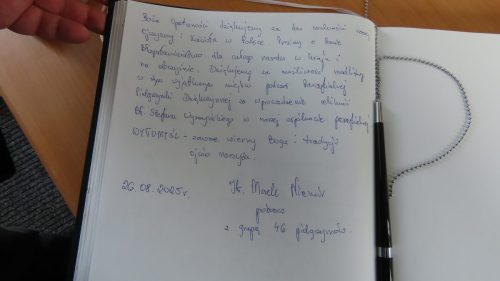 Boże Opatrzności dziękujemy za dar wolności naszej
ojczyzny i Kościoła w Polsce. Prosimy o Twoje
błogosławieństwo dla całego narodu w kraju i
na obczyźnie. Dziękujemy za możliwość modlitwy
w tym wyjątkowym miejscu podczas Parafialnej
Pielgrzymki Dziękczynnej za wprowadzenie relikwii
Bł. Stefana Wyszyńskiego w naszej wspólnocie parafialnej
WYTOMYŚL - zawsze wierny Bogu i tradycji
ojców naszych.
26.08.2025 r.
Ks. Marek
proboszcz
z grupą 46 pielgrzymów.